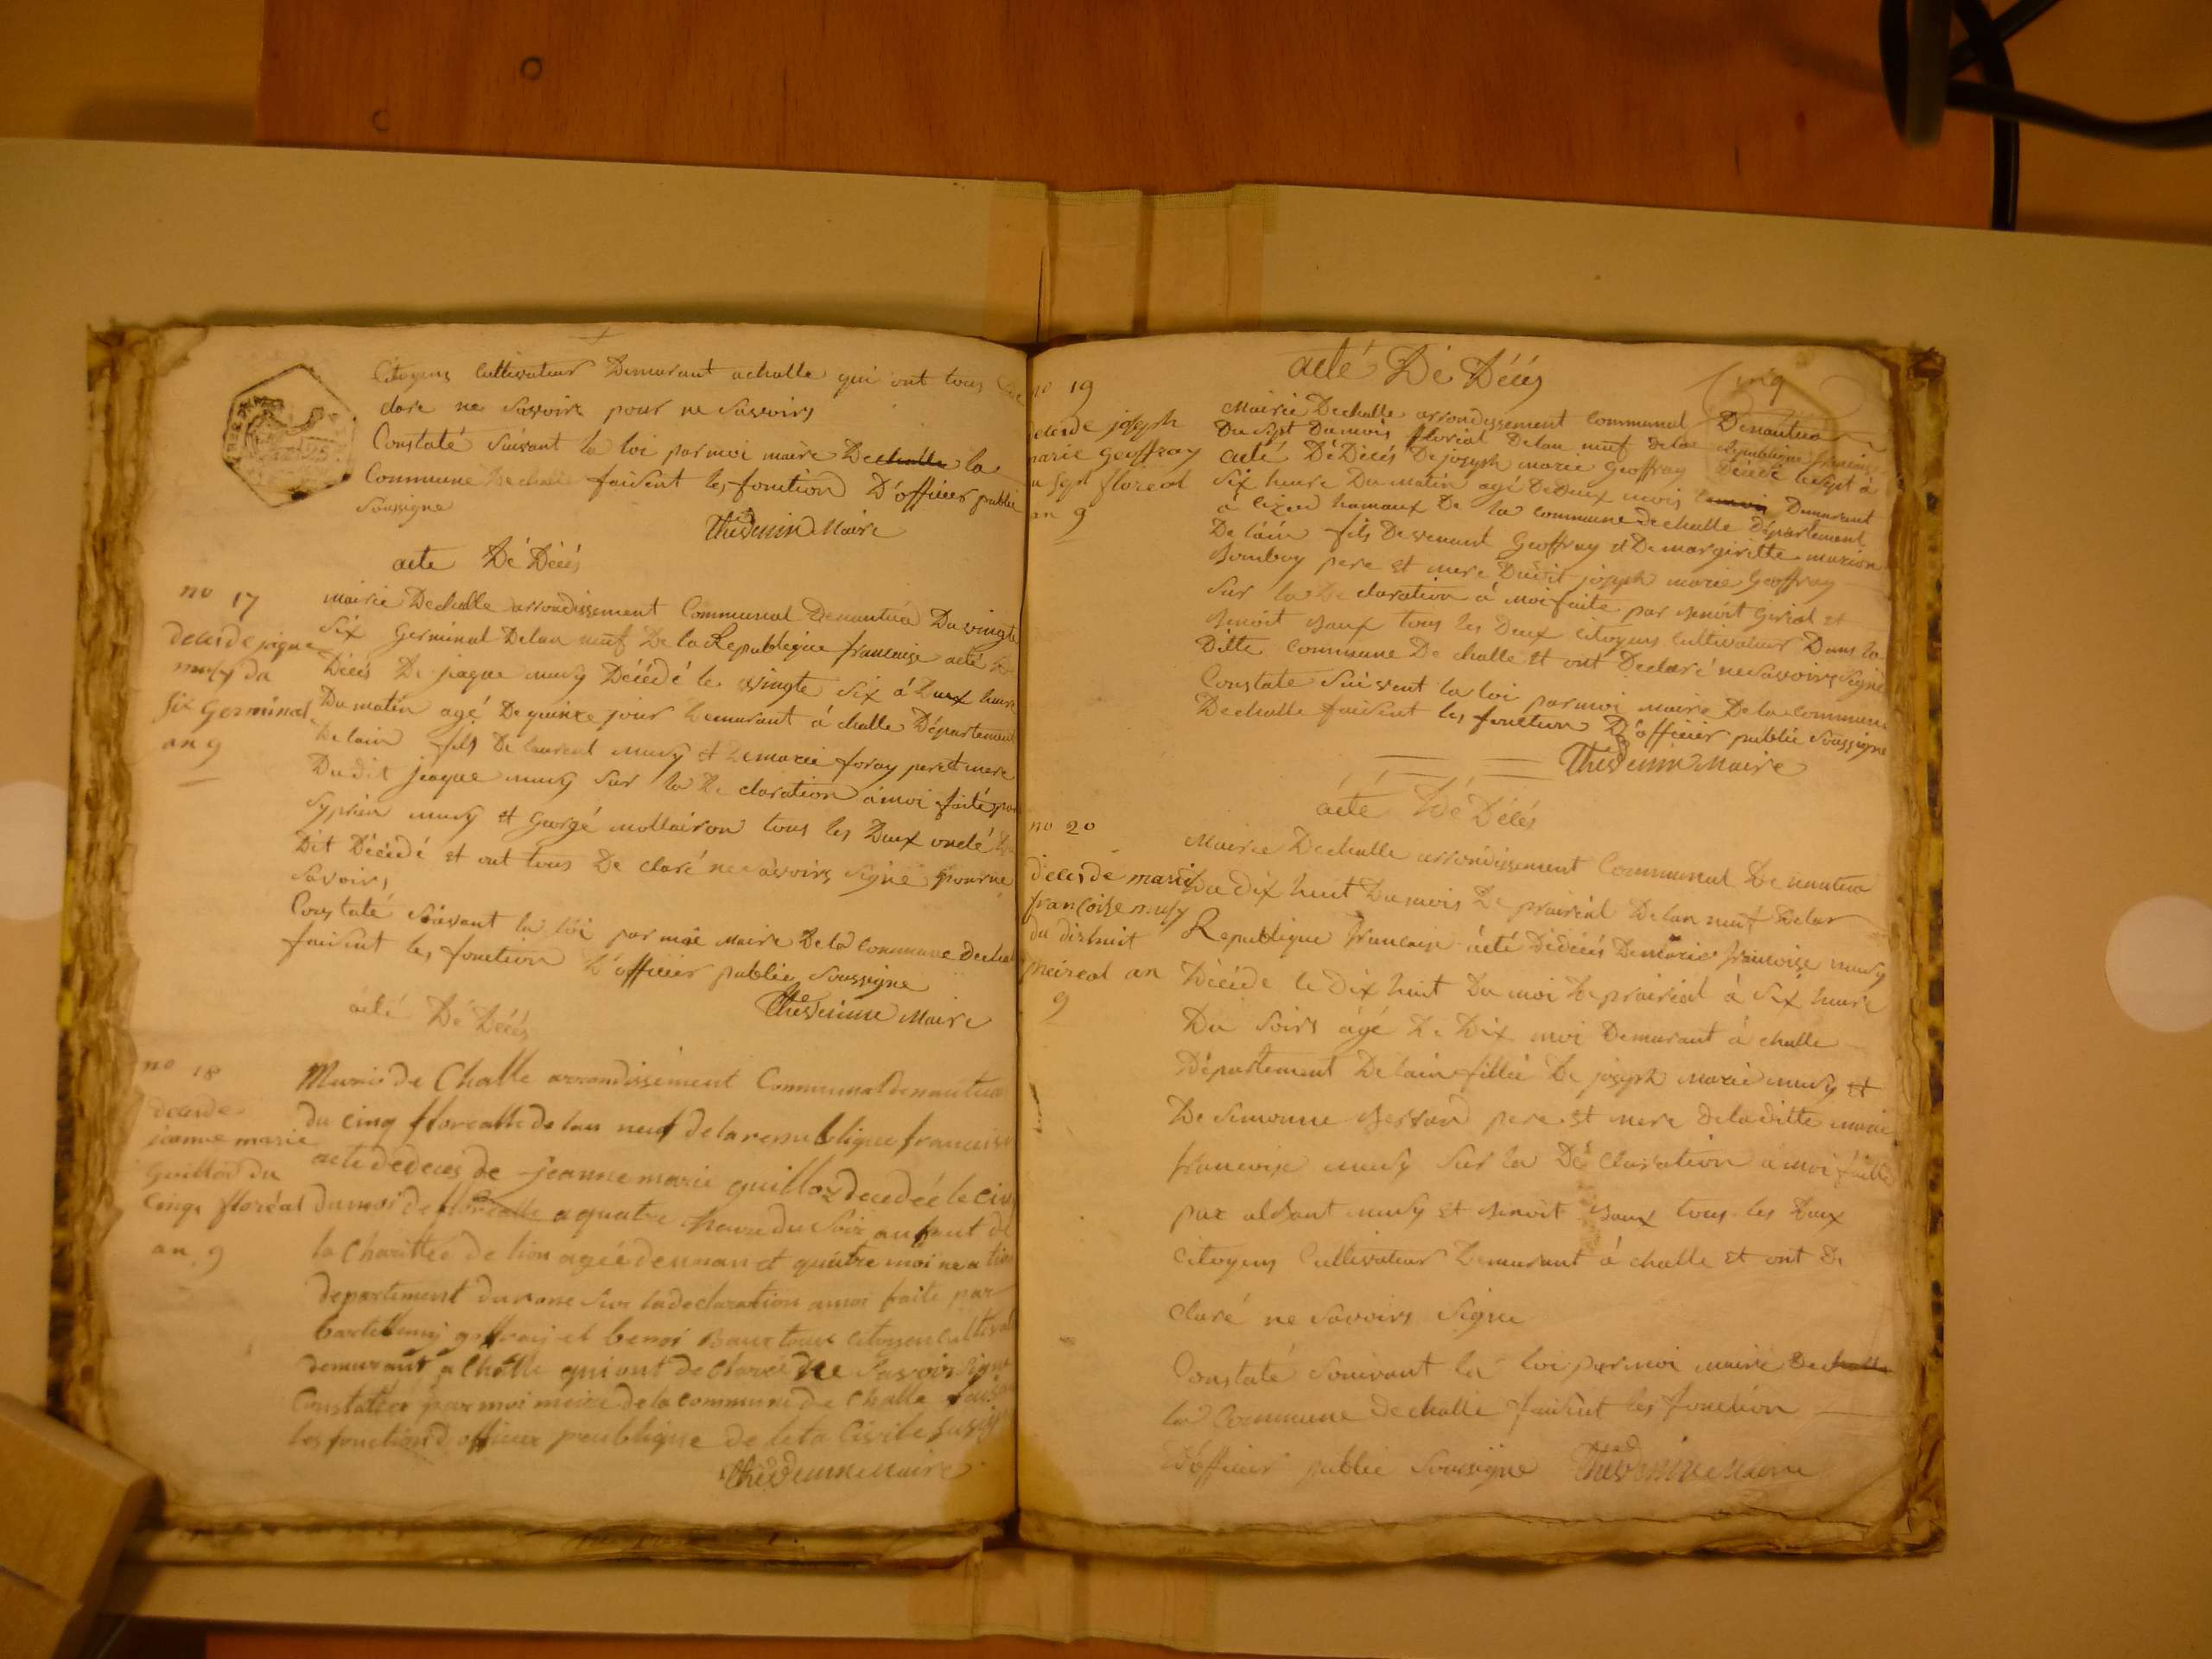 Citoyens Cultivateur Demurant achalle qui ont tous
clare ne Savoire pour ne Savoirs
Constaté Suivant la loi par moi maire Dechalle la
Commune Dechalle faisent les fonction D'officier public
Soussigne
Thevenin Maire
acte Dé Déés
no 17
deces de jaque
musy du
six Germinal
an 9
mairie Dechalle arrondissement Communal Denantua Du vingte
Six Germinal Delan neuf De la Republique francaise acté De
Déés De jiaque musy Décédé le vingte Six á Deux heure
Du matin agé De quinze jour Demurant á challe Département
Delain fils De laurent musy et Demarie foray pere et mere
Dudit jiaque musy Sur la De claration á moi faité par
Syprien musy et Georgé mollairon tous les Deux onclé Du
Dit Décédé et ont tous De claré ne Savoirs Signé pour ne
Savoirs
Constaté Suivant la loi par moi maire Dela Commune Dechalle
faisent les fonction D'officier public Soussigne
Thevenin Maire
acté Dé Déés
no 18
deces de
jeanne marie
Guillod du
Cinqe floréal
an 9
Mairie de Challe arrondissement Communal Denantua
du cinq florealle de lan neuf de la republique francaise
acte de deces de jeanne marie guilloz decedée le cin
du moi de florealle a quatre heure du Soir anfant de
la Charittée de lion agée dennan et quatre moi ne a lion
departement durone Sur la declaration a moi faite par
bartelemy goffray et benoi Baux tous Citoyen Cultivat
demurant a Challe qui ont declaree ne Savoir Signe
Constattée par moi maire de la commune de Challe faisan
les fonction d officier peublique de leta Civile Susig
Thevenin Maire
acté Dé Déés
cinq
no 19
deces de joseph
marie geoffray
du sept floreal
an 9
Mairie Dechalle arrondissement Communal Denantua
Du Sept Dumois floréal Delan neuf Dela Republique francaise
acté Dé Déés De joseph marie Geoffray Décédé le Sept á
Six heure Du matin agé De Deux mois Demurant
a hamaux De la commune dechalle Département
De láin fils De venant Geoffray et De margiritte marion
Bomboy pere et mere Dudit joseph marie Geoffray
Sur la De claration á moi faite par Benoit Gerial et
Benoit Baux tous les Deux Citoyens Cultivateur Dans la
Ditte Commune De challe et ont Declaré ne Savoirs Signé
Constate Suivent la loi par moi maire De la commune
Dechalle faisent les fonction D'officier public Soussigne
Thevenin Maire
acté Dé Déés
no 20
deces de marie
françoise musy
du dishuit
preireal an
9
Mairie Dechalle arrondissement Communal De nantua
Du Dix huit Dumois De prairial Delan neuf Dela
Republique francaise acté Dédéés Demarie francoise musy
Décéde le Dix huit Du moi De prairial á Six heure
Du Soirs ágé De Dix moi Demurant á challe
Département Delain fillie De joseph marie musy et
De Simonne Bessard pere et mere dela ditte marie
francoise musy Sur la Dé claration a moi faitte
par musy et Benoit Baux tous les Deux
Citoyens Cultivateur Demurant á challe et ont De
claré ne Savoirs Signe
Constaté Souivant la loi par moi maire Dechalle
la Commune dechalle faisent les fonction
D'officier public Soussigne Thevenin Maire